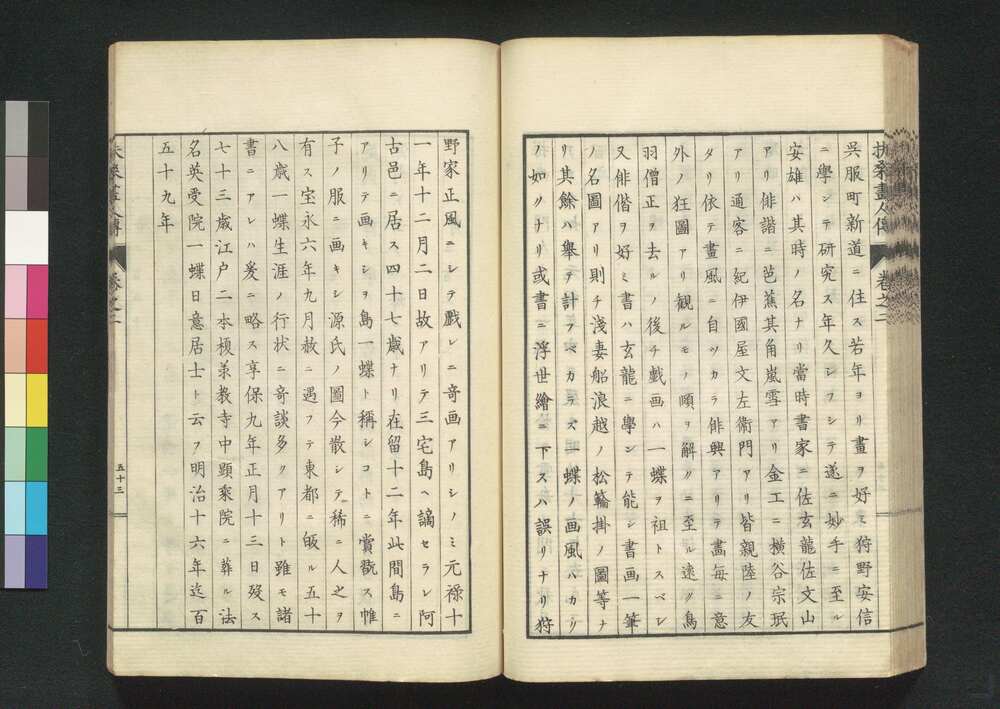 扶桑畫人傳 卷之二
呉服町新道ニ住ス若年ヨリ畫ヲ好ミ狩野安信
ニ學ンテ研究ス年久シフシテ遂ニ妙手ニ至ル
安雄ハ其時ノ名ナリ當時書家ニ佐玄龍佐文山
アリ俳諧ニ芭蕉其角嵐雪アリ金工ニ横谷宗珉
アリ通客ニ紀伊國屋文左衞門アリ皆親陸ノ友
タリ依テ畫風ニ自ツカラ俳興アリテ畵毎ニ意
外ノ狂圖アリ観ルモノ頤ヲ解クニ至ル遠ク鳥
羽僧正ヲ去ルノ後チ戯画ハ一蝶ヲ祖トスベシ
又俳偕ヲ好ミ書ハ玄龍ニ學ンテ能シ書画一筆
ノ名圖アリ則チ淺妻船浪越ノ松輪掛ノ圖等ナ
リ其餘ハ舉テ計フベカラズ一蝶ノ画風ハカク
ノ如クナリ或書ニ浮世繪ニ下スハ誤リナリ狩
野家正風ニシテ戲レニ奇画アリシノミ元禄十
一年十二月二日故アリテ三宅島ヘ謫セラレ阿
古邑ニ居ス四十七歳ナリ在留十二年此間島ニ
アリテ画キシヲ島一蝶ト稱シコトニ賞翫ス帷
子ノ服ニ画キシ源氏ノ圖今散シテ稀ニ人之ヲ
有ス宝永六年九月赦ニ遇フテ東都ニ皈ル五十
八歳一蝶生涯ノ行状ニ奇談多クアリト雖モ諸
書ニアレハ爰ニ略ス享保九年正月十三日歿ス
七十三歳江户二本榎䒭教寺中顕乘院ニ葬ル法
名英受院一蝶日意居士ト云フ明治十六年迄百
五十九年
扶桑畫人傳 卷之二
五十三